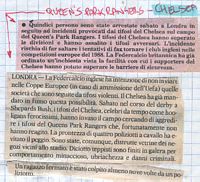 QUEEN'S PARK RANGERS - CHELSEA
Quindici persone sono state arrestate sabato a Londra in
seguito ad incidenti provocati dai tifosi del Chelsea nel campo
del Queen's Park Rangers. I tifosi del Chelsea hanno superato
le divisioni e hanno assalito i tifosi avversari. L'incidente
rischia di far saltare i tentativi di far tornare i club inglesi nelle
competizioni europee del 1988. La Federcalcio inglese ha già
ordinato un'inchiesta circa la facilità con cui i supporters del
Chelsea hanno potuto superare le barriere di sicurezza.
LONDRA — La Federcalcio inglese ha intenzione di non inviare
nelle Coppe Europee (in caso di ammissione dell'Uefa) quelle
società che sono seguite da tifosi violenti. Il Chelsea ha già
dato in fumo questa possibilità. Sabato nel corso del derby a
Shepards Bush, i tifosi del Chelsea, celebri da tempo come hoo-
ligans ferocissimi, hanno invaso il campo cercando di aggredi-
re i tifosi del Queens Park Rangers che, fortunatamente non
hanno reagito. La prontezza di quattro poliziotti a cavallo ha e-
vitato il peggio. Sono state, comunque, distrutte vetrine dei ne-
gozi vicini allo stadio. Diciotto teppisti sono finiti in galera per
comportamento minaccioso, ubriachezza e danni criminali.
Un ragazzo fermato è stato colpito almeno nove volte da un po-
liziotto.